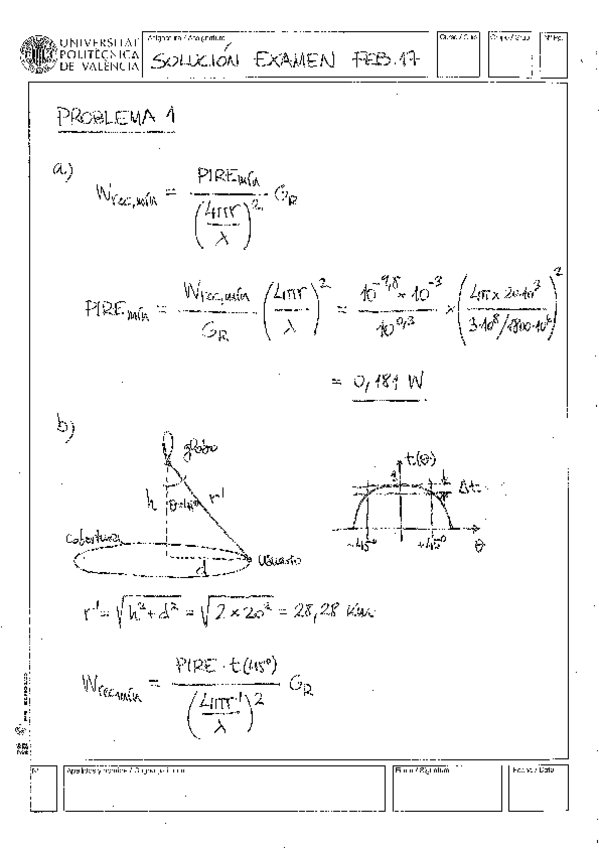 UNIVERSITAT
POLITÈCNICA
DE VALÈNCIA
Asignatura / Assignatura
SOLUCIÓN EXAMEN FEB.17
Curso / Curs
Grupo / Grup
PROBLEMA 1
a.)
W_rec,mín = PIRE_mín / (4πr/λ)² G_R
PIRE_mín = W_rec,mín / G_R (4πr/λ)² = 10^-9,8 × 10^-3 / 10^0,3 × (4π × 20·10³ / 3·10⁸/1800·10⁶)²
= 0,181 W
b)
globo
t(θ)
h
r'
Δt
cobertura
d
Usuario
-45º
+45º
θ
r' = √h²+d² = √2 × 20² = 28,28 Km
W_rec,mín = PIRE · t(45º) / (4πr'/λ)² G_R
Fecha / Data